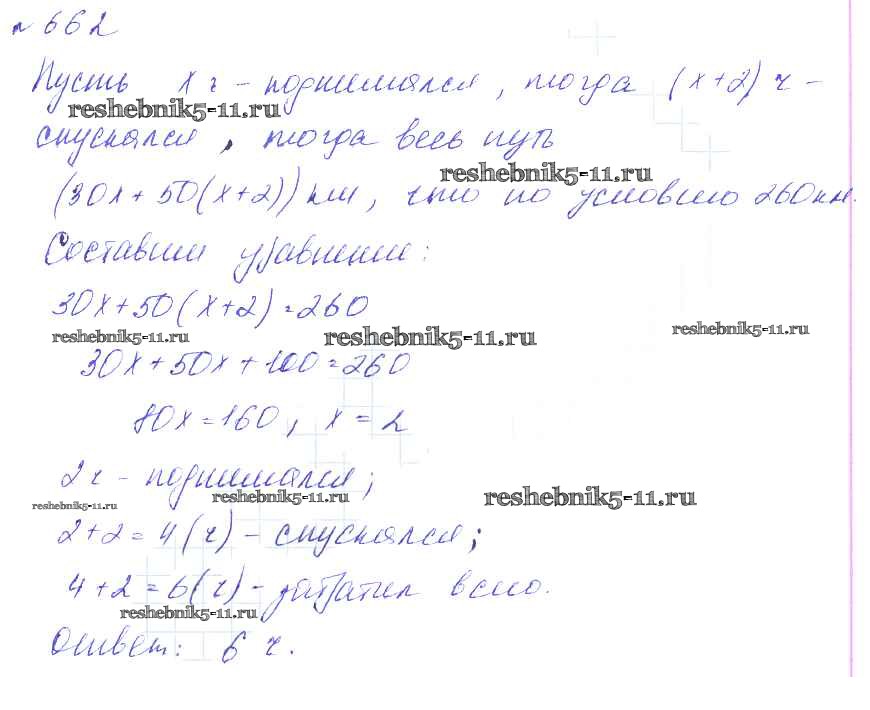 № 662
Пусть х ч - поднимался, тогда (х+2) ч -
reshebnik5-11.ru
спускался, тогда весь путь
reshebnik5-11.ru
(30х + 50(х+2)) км, что по условию 260 км.
Составим уравнение:
30х + 50(х+2) = 260
reshebnik5-11.ru reshebnik5-11.ru reshebnik5-11.ru
30х + 50х + 100 = 260
80х = 160, х = 2
2 ч - поднимался;
reshebnik5-11.ru reshebnik5-11.ru reshebnik5-11.ru
2+2 = 4 (ч) - спускался;
4+2 = 6 (ч) - затратил всего.
reshebnik5-11.ru
Ответ: 6 ч.